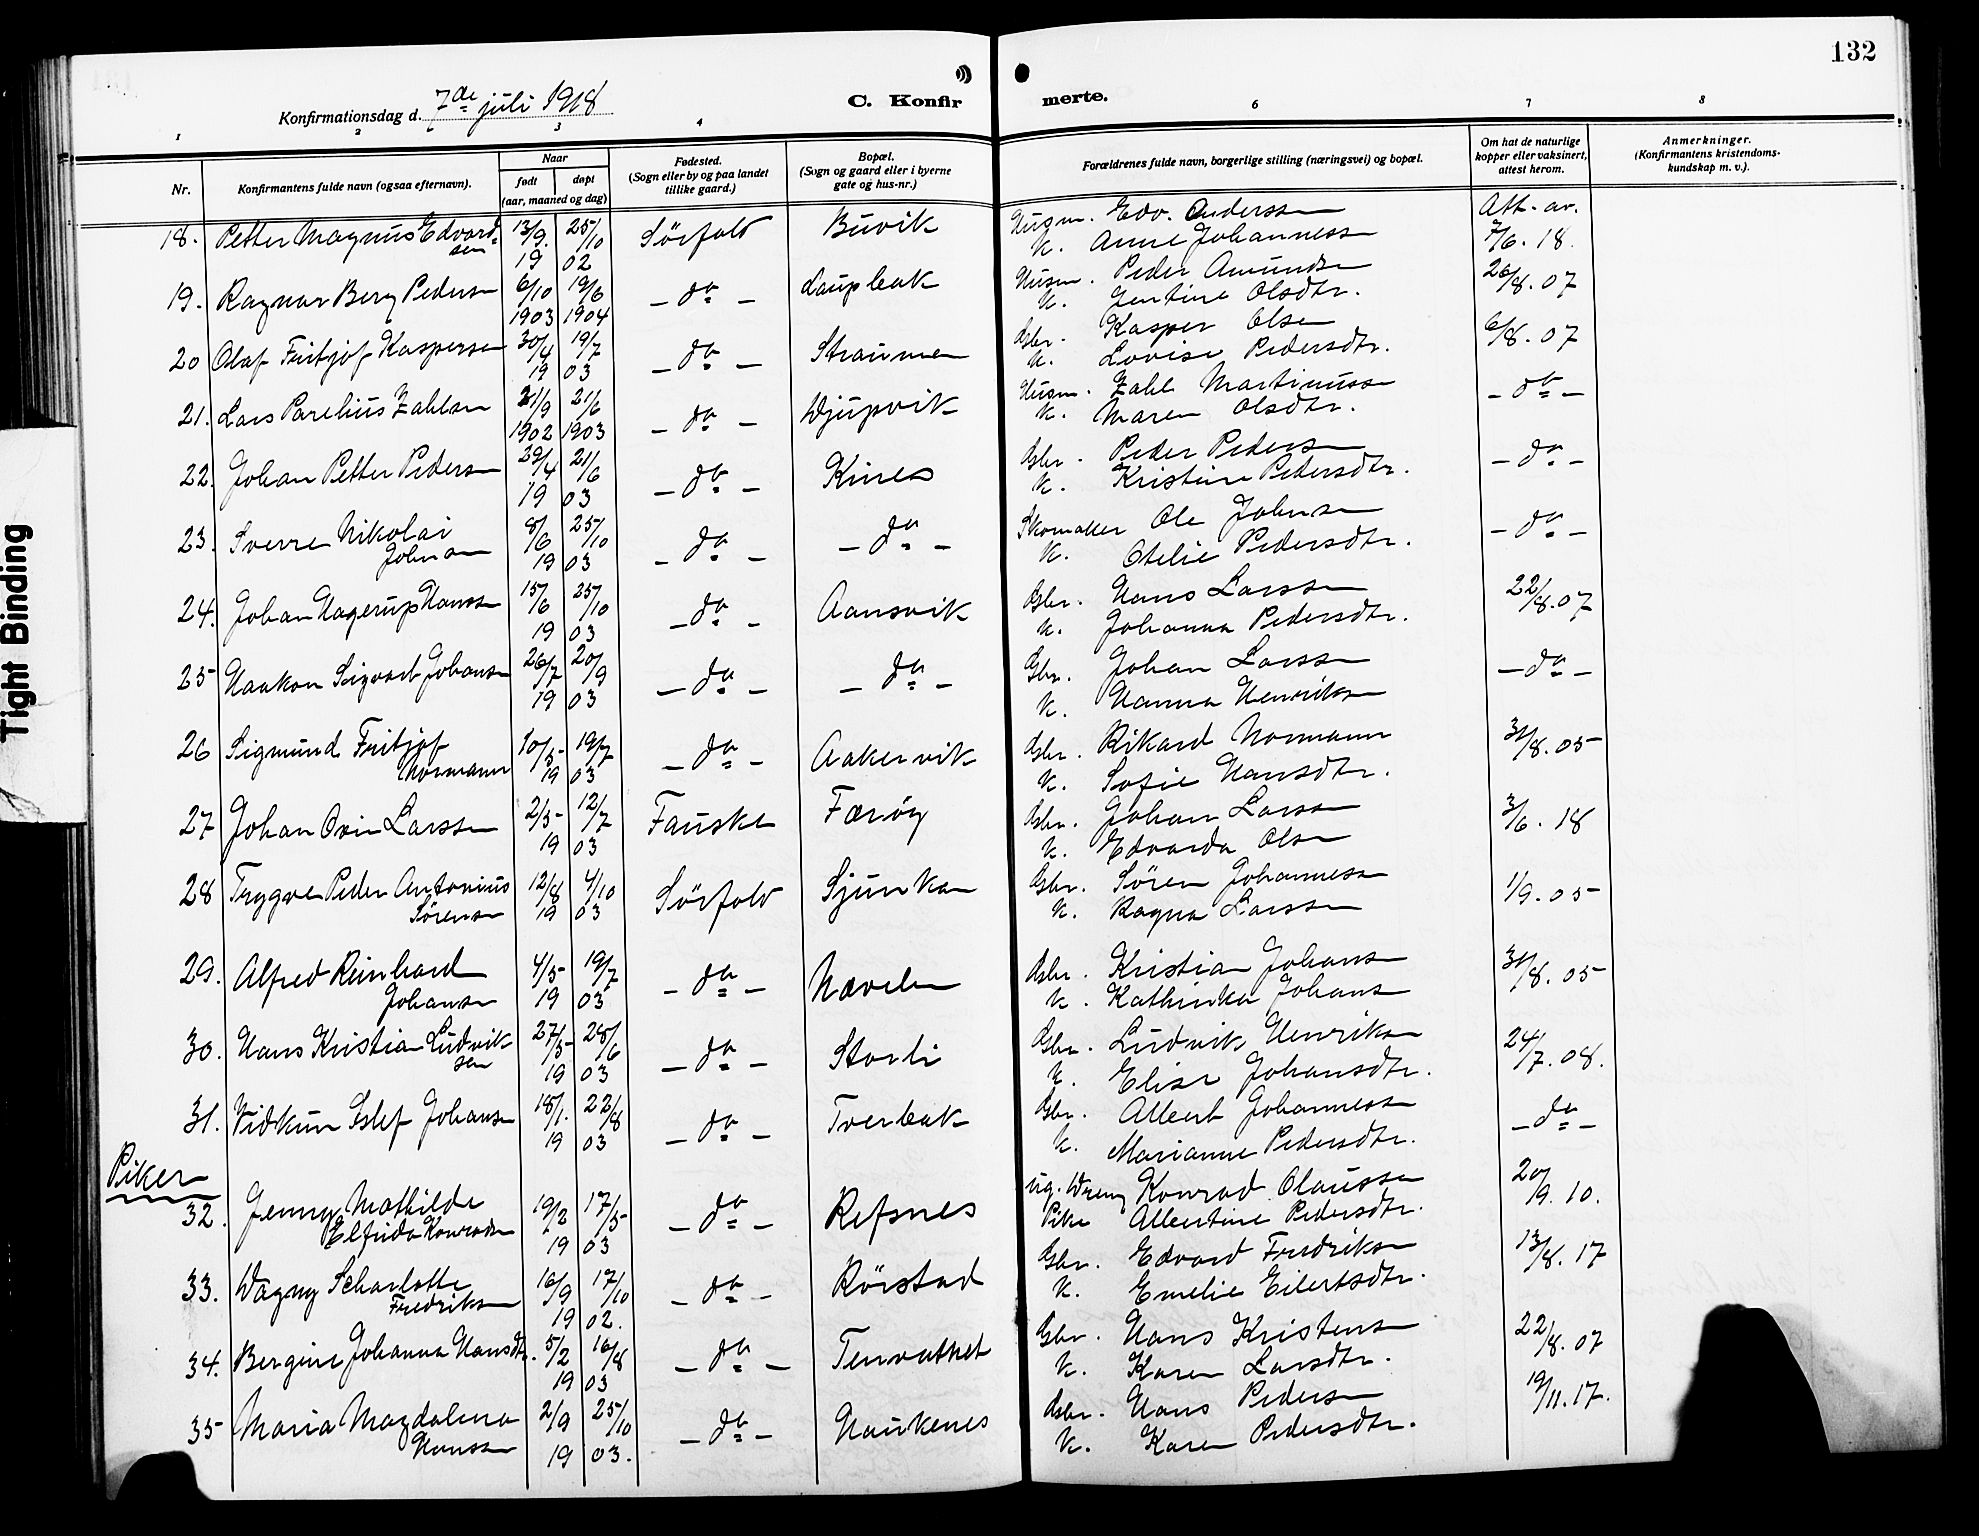 132
Konfirmationsdag d. 7de juli 1918
C. Konfirmerte.
1 2 3 4 6 7 8
Nr.
Konfirmantens fulde navn (ogsaa efternavn).
Naar født døpt (aar, maaned og dag)
Fødested. (Sogn eller by og paa landet tillike gaard.)
Bopæl. (Sogn og gaard eller i byerne gate og hus-nr.)
Forældrenes fulde navn, borgerlige stilling (næringsvei) og bopæl.
Om hat de naturlige kopper eller vaksinert, attest herom.
Anmerkninger. (Konfirmantens kristendoms-kundskap m. v.).
18. Petter Magnus Edvardsen 13/9. 25/10 1902 Sörfold Buvik Husm. Edv. Anderssen K. Anne Johannessen Att. av. 7/6. 18.
19. Ragnar Berg Pedersen 6/10 1903 19/6 1904 - do - Laupbak Husm. Peder Amundsen K. Jentine Olsdtr. 26/8. 07
20 Olaf Fritjof Kaspersen 30/4 19/7 1903 - do - Straumen Gbr. Kasper Olsen K. Lovise Pedersdtr. 6/8. 07
21. Lars Parelius Zahlsen 21/9 1902 21/6 1903 - do - Djupvik Husm. Zahl Martinussen K. Maren Olsdtr. - do -
22. Johan Petter Pedersen 29/4 21/6 1903 - do - Kines Gbr. Peder Pedersen K. Kristine Pedersdtr. - do -
23. Sverre Nikolai Johnsen 8/6 25/10 1903 - do - - do - Skomaker Ole Johnsen K. Otelie Pedersdtr. - do -
24. Johan Hagerup Hanssen 15/6 25/10 1903 - do - Aansvik Gbr. Hans Larssen K. Johanna Pedersdtr. 22/8. 07
25 Haakon Sigvard Johansen 26/7 20/9 1903 - do - - do - Gbr. Johan Larssen K. Hanna Henriksen - do -
26 Sigmund Fritjof Normann 10/5 19/7 1903 - do - Aakervik Gbr. Rikard Normann K. Sofie Hansdtr. 31/8. 05
27 Johan Ovin Larssen 2/5 12/7 1903 Fauske Færöy Gbr. Johan Larssen K. Edvarda Olsen 3/6. 18
28 Trygve Peder Antonius Sörensen 12/8 4/10 1903 Sörfold Sjunkan Gbr. Sören Johannessen K. Ragna Larssen 1/9. 05
29. Alfred Reinhard Johansen 4/5 19/7 1903 - do - Nævelen Gbr. Kristian Johansen K. Kathinka Johansen 31/8. 05
30. Hans Kristian Ludviksen 27/5 28/6 1903 - do - Storli Gbr. Ludvik Henriksen K. Elise Johansdtr. 24/7. 08.
31. Vidkun Eslef Johansen 18/1. 22/8 1903 - do - Tverbak Gbr. Albert Johannessen K. Marianne Pedersdtr. - do -
Piker
32. Jenny Mathilde Elfrida Konradsen 19/2 17/5 1903 - do - Refsnes Ug. Dreng Konrad Claussen Pike Albertine Pedersdtr. 20/9. 10.
33. Dagny Scharlotte Fredriksen 16/9 17/10 1902. - do - Rörstad Gbr. Edvard Fredriksen K. Emelie Eilertsdtr. 13/8. 17
34. Bergine Johanna Hansdtr. 5/2 16/8 1903 - do - Tenvathet Gbr. Hans Kristensen K. Karen Larsdtr. 22/8. 07
35 Maria Magdalena Hanssen 2/9 25/10 1903. - do - Haukenes Gbr. Hans Pedersen K. Karen Pedersdtr. 19/11. 17.
Tight Binding